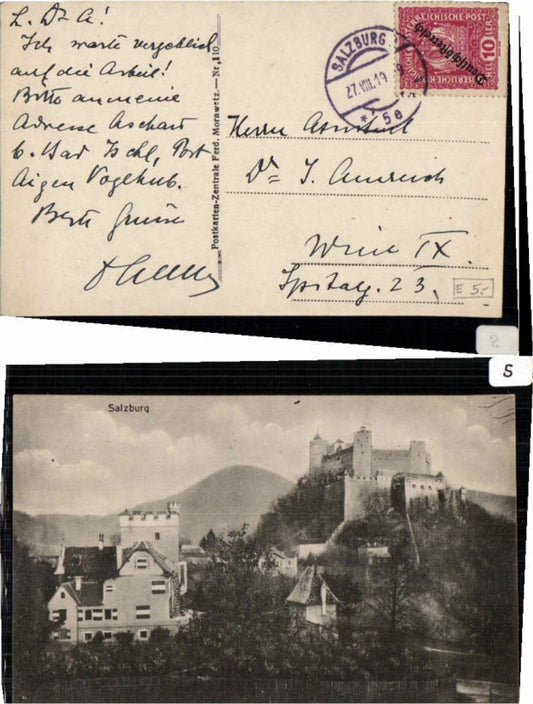 L. Dr A!
Ich warte vergeblich
auf die Arbeit!
Bitte an meine
Adresse Aschau
b. Bad Ischl, Post
Aigen Voglhub.
Beste Grüsse
Postkarten-Zentrale Ferd. Morawetz.—Nr. 110
SALZBURG
27.VIII.19
* 5e
ÖSTERREICHISCHE POST
HELLER 10 HELLER
Deutschösterreich
Herrn Assistent
Dr J. Amreich
Wien IX.
Spitalg. 23.
E 5.-
2
S
Salzburg